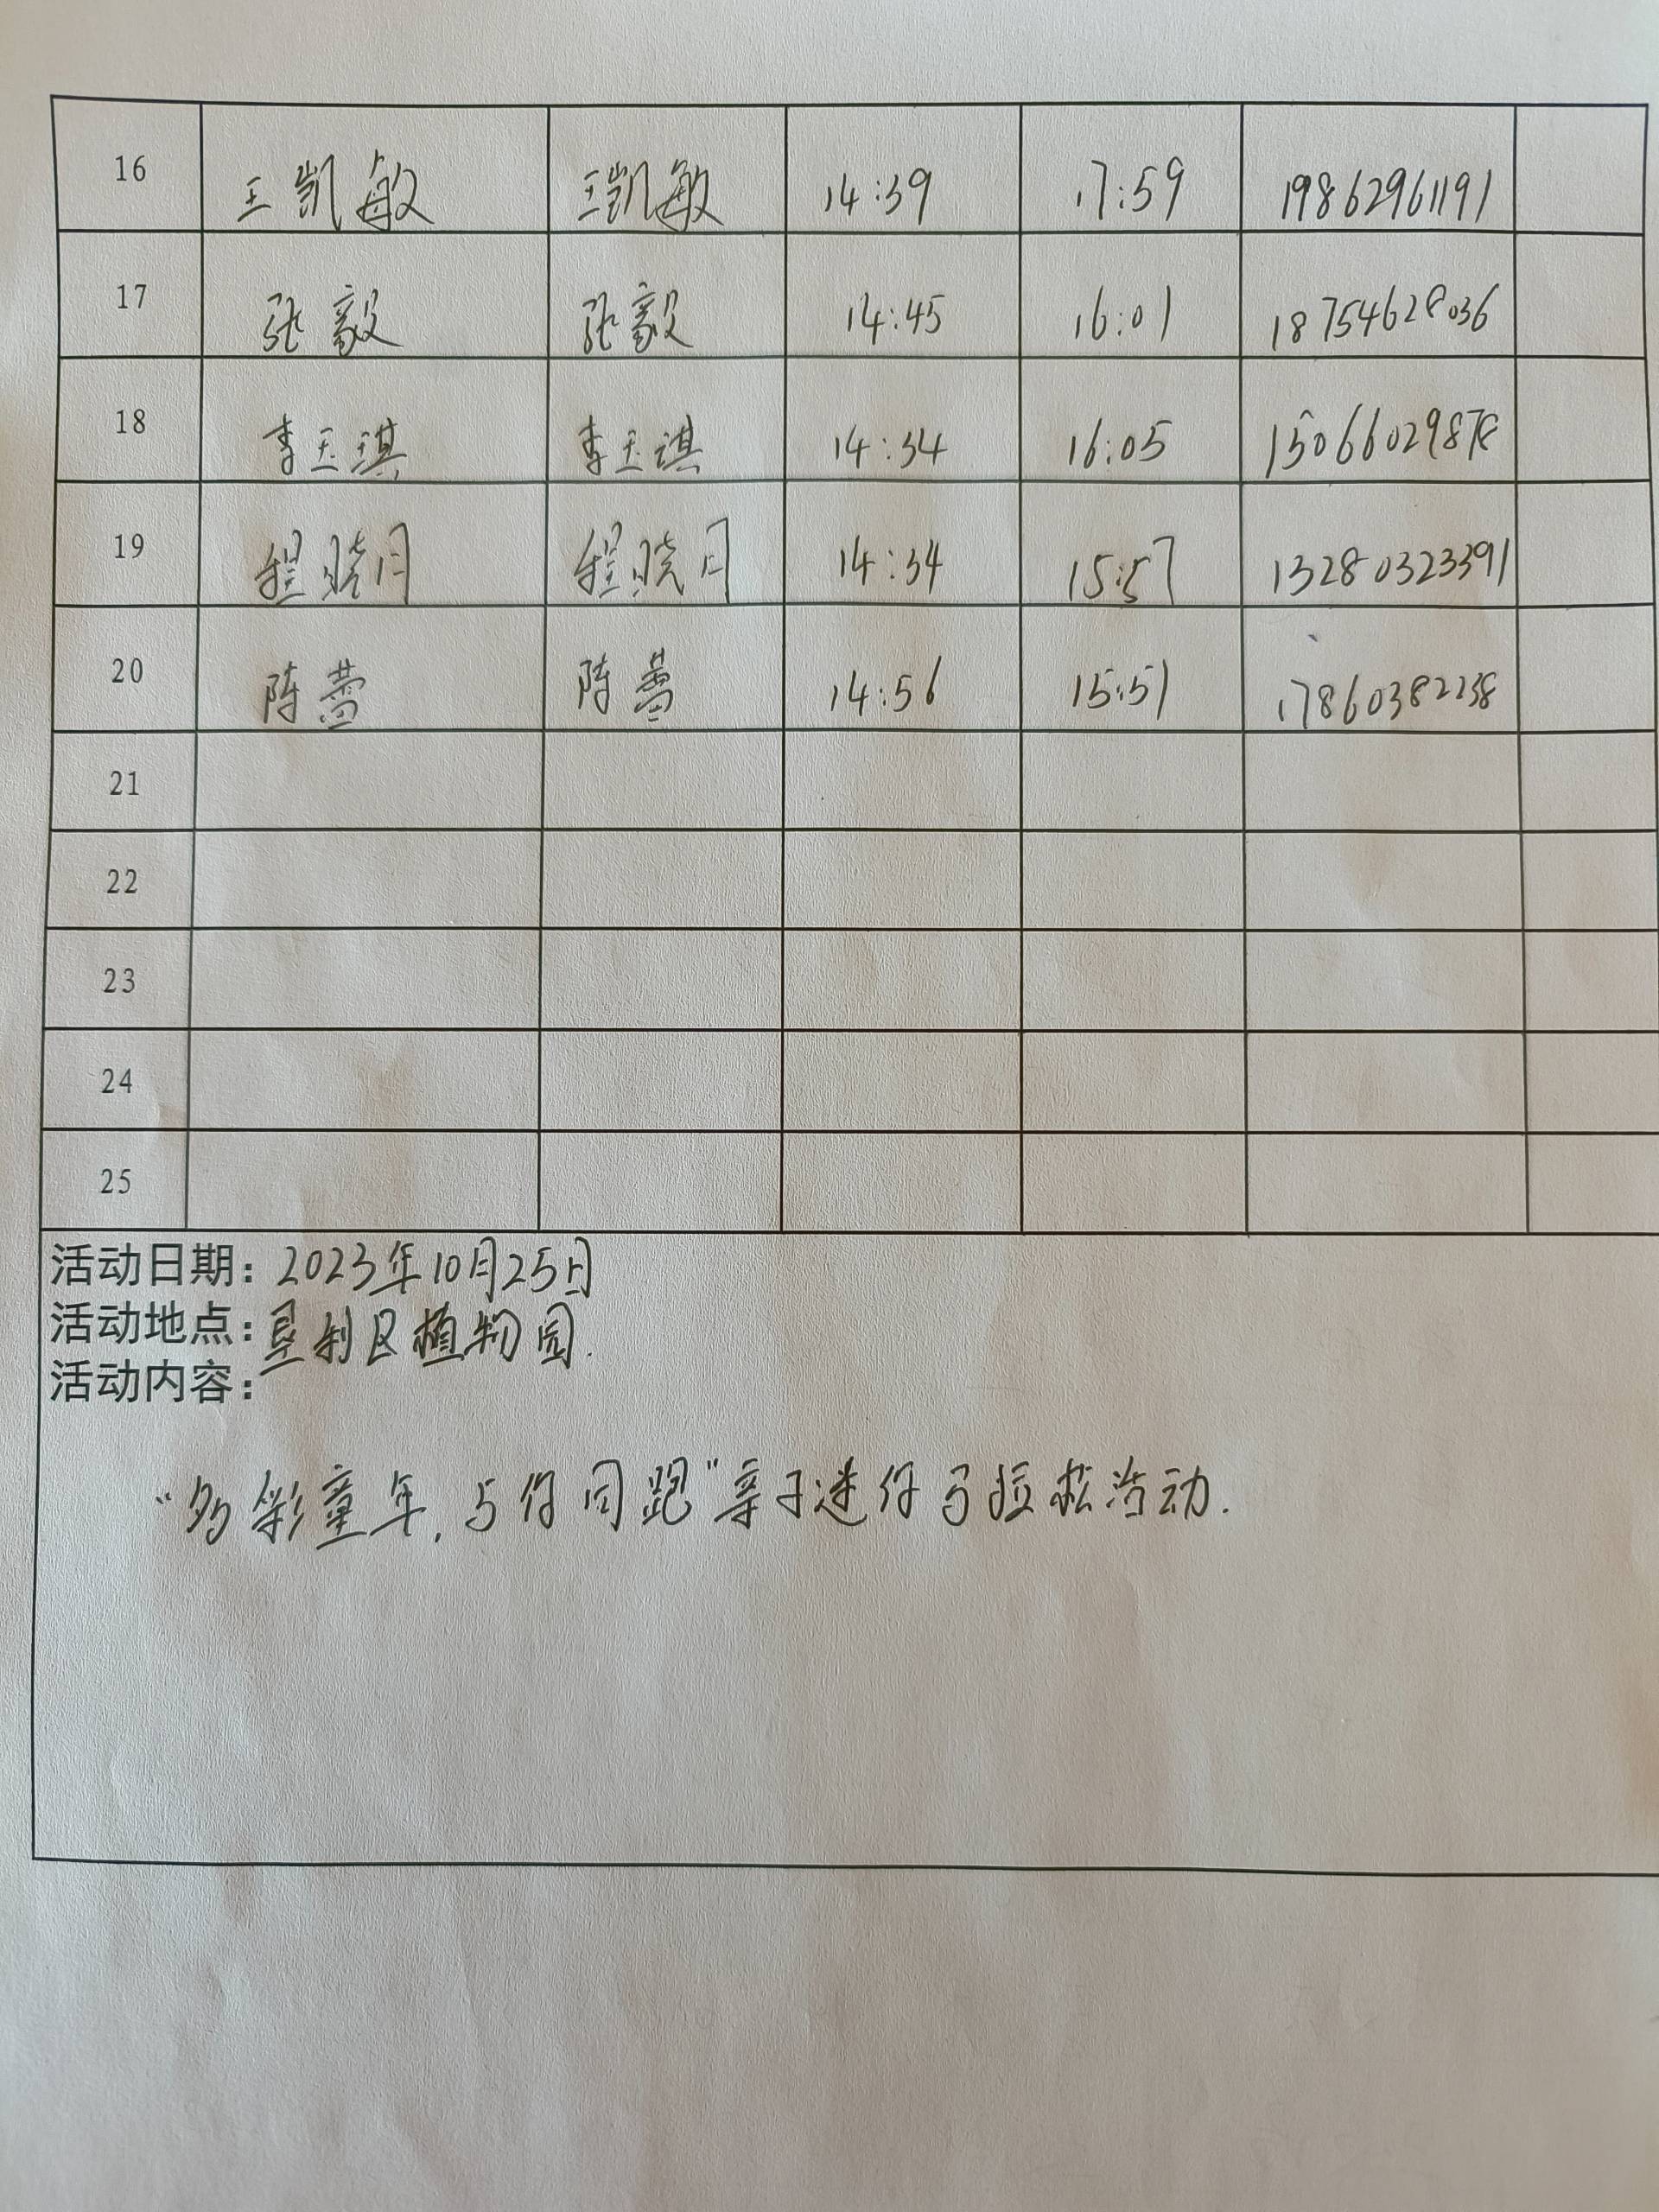 16 王凯敏 王凯敏 14:39 17:59 19862961191
17 张毅 张毅 14:45 16:01 18754628036
18 李玉琪 李玉琪 14:34 16:05 15066029878
19 程晓月 程晓月 14:34 15:57 13280323391
20 陈蕾 陈蕾 14:56 15:51 17860382238
21
22
23
24
25
活动日期：2023年10月25日
活动地点：垦利区植物园.
活动内容：
“多彩童年，与仔同跑”亲子迷仔马拉松活动.